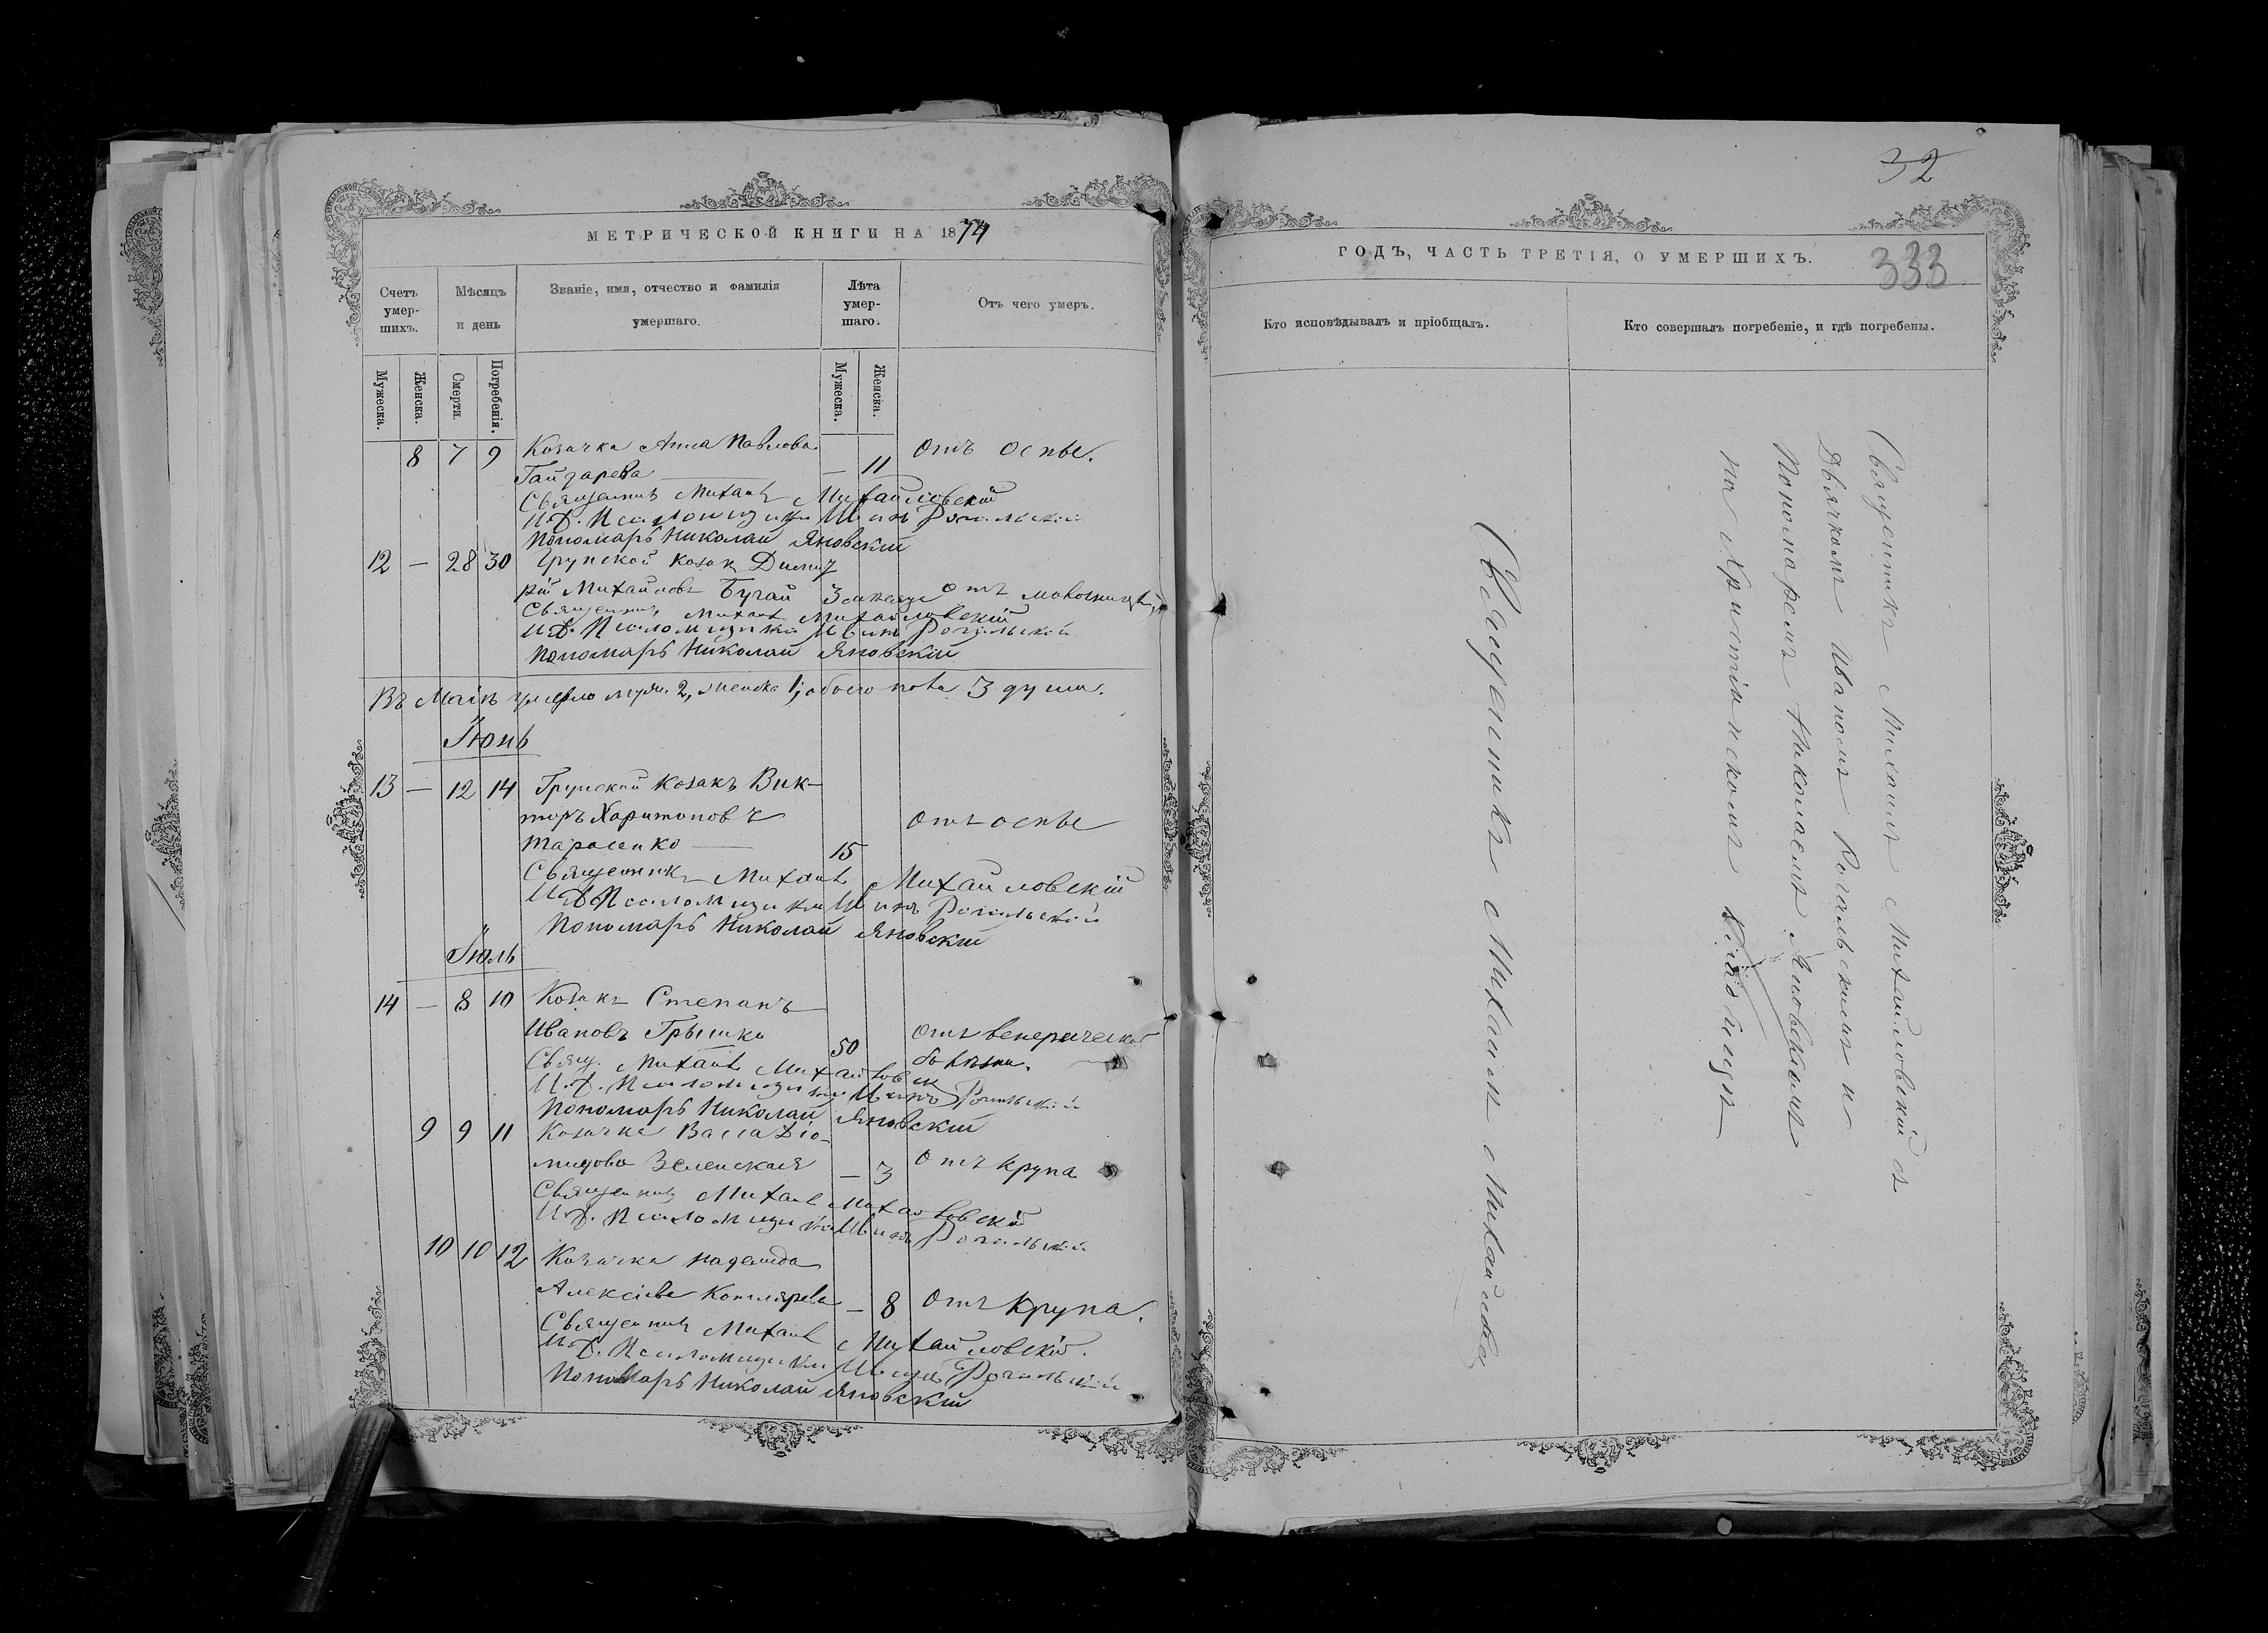 МЕТРИЧЕСКОЙ КНИГИ НА 1874
Счетъ умер-шихъ.
Мѣсяцъ и день
Званіе, имя, отчество и фамилія умершаго.
Лѣта умер-шаго.
Отъ чего умеръ.
Мужеска.
Женска.
Смерти.
Погребенія.
Мужеска.
Женска.
8 7 9 Козачка Анна Павлова
Гайдарева — 11 отъ оспы.
Священникъ Михаилъ Михайловскій
И.Д. Псаломщика Иванъ Рогальскій
Пономарь Николай Яновскій
12 — 28 30 Грунской козак Димит
рій Михайловъ Бугай 3 отъ
Священникъ Михаилъ Михайловскій
И.Д. Псаломщика Иванъ Рогальскій
Пономарь Николай Яновскій
Въ Маіѣ умерло муж. 2, женска 1, обоего пола 3 души.
Іюнь
13 — 12 14 Грунской козакъ Вик-
торъ Харитоновъ отъ оспы
Тарасенко — 15
Священникъ Михаилъ Михайловскій
И.Д. Псаломщика Иванъ Рогальскій
Пономарь Николай Яновскій
Іюль
14 — 8 10 Козакъ Степанъ
Ивановъ Гришко 50 отъ венерической
болѣзни.
Свящ. Михаилъ Михайловск
И.Д. Псаломщика Иванъ Рогальскій
Пономарь Николай Яновскій
9 9 11 Козачка Васса Діо-
мидова Зеленская — 3 отъ крупа
Священникъ Михаилъ Михайловскій
И.Д. Псаломщика Иванъ Рогальскій
10 10 12 Козачка Надежда
Алексіева Котлярева — 8 отъ крупа.
Священникъ Михаилъ Михайловскій.
И.Д. Псаломщика Иванъ Рогальскій
Пономарь Николай Яновскій
32
333
ГОДЪ, ЧАСТЬ ТРЕТІЯ, О УМЕРШИХЪ.
Кто исповѣдывалъ и пріобщалъ.
Кто совершалъ погребеніе, и гдѣ погребены.
Священникъ Михаилъ Михайловскій
Священникъ Михаилъ Михайловскій съ
Дьячкомъ Иваномъ Рогальскимъ и
Пономаремъ Николаемъ Яновскимъ
на Христіанскомъ кладбищѣ